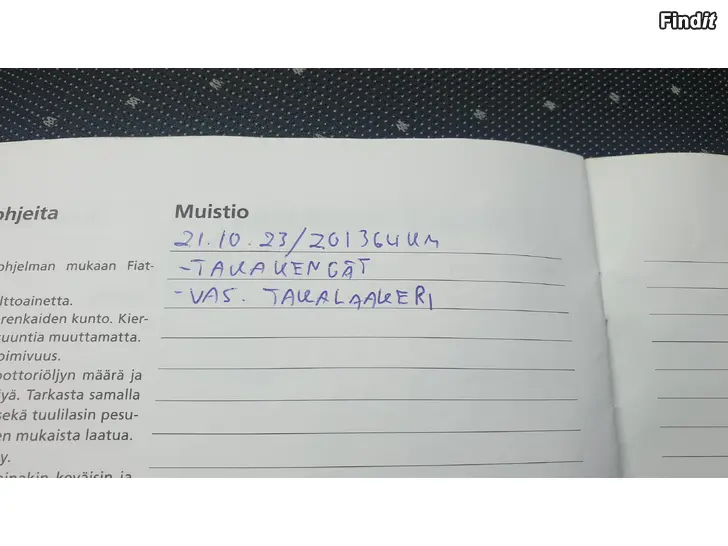 Findit
ohjeita
ohjelman mukaan Fiat-
lttoainetta.
renkaiden kunto. Kier-
suuntia muuttamatta.
oimivuus.
oottoriöljyn määrä ja
iyä. Tarkasta samalla
sekä tuulilasin pesu-
en mukaista laatua.
y.
ainakin keväisin ja
Muistio
21.10.23/201364KM
-TAKAKENGÄT
-VAS. TAKALAAKERI